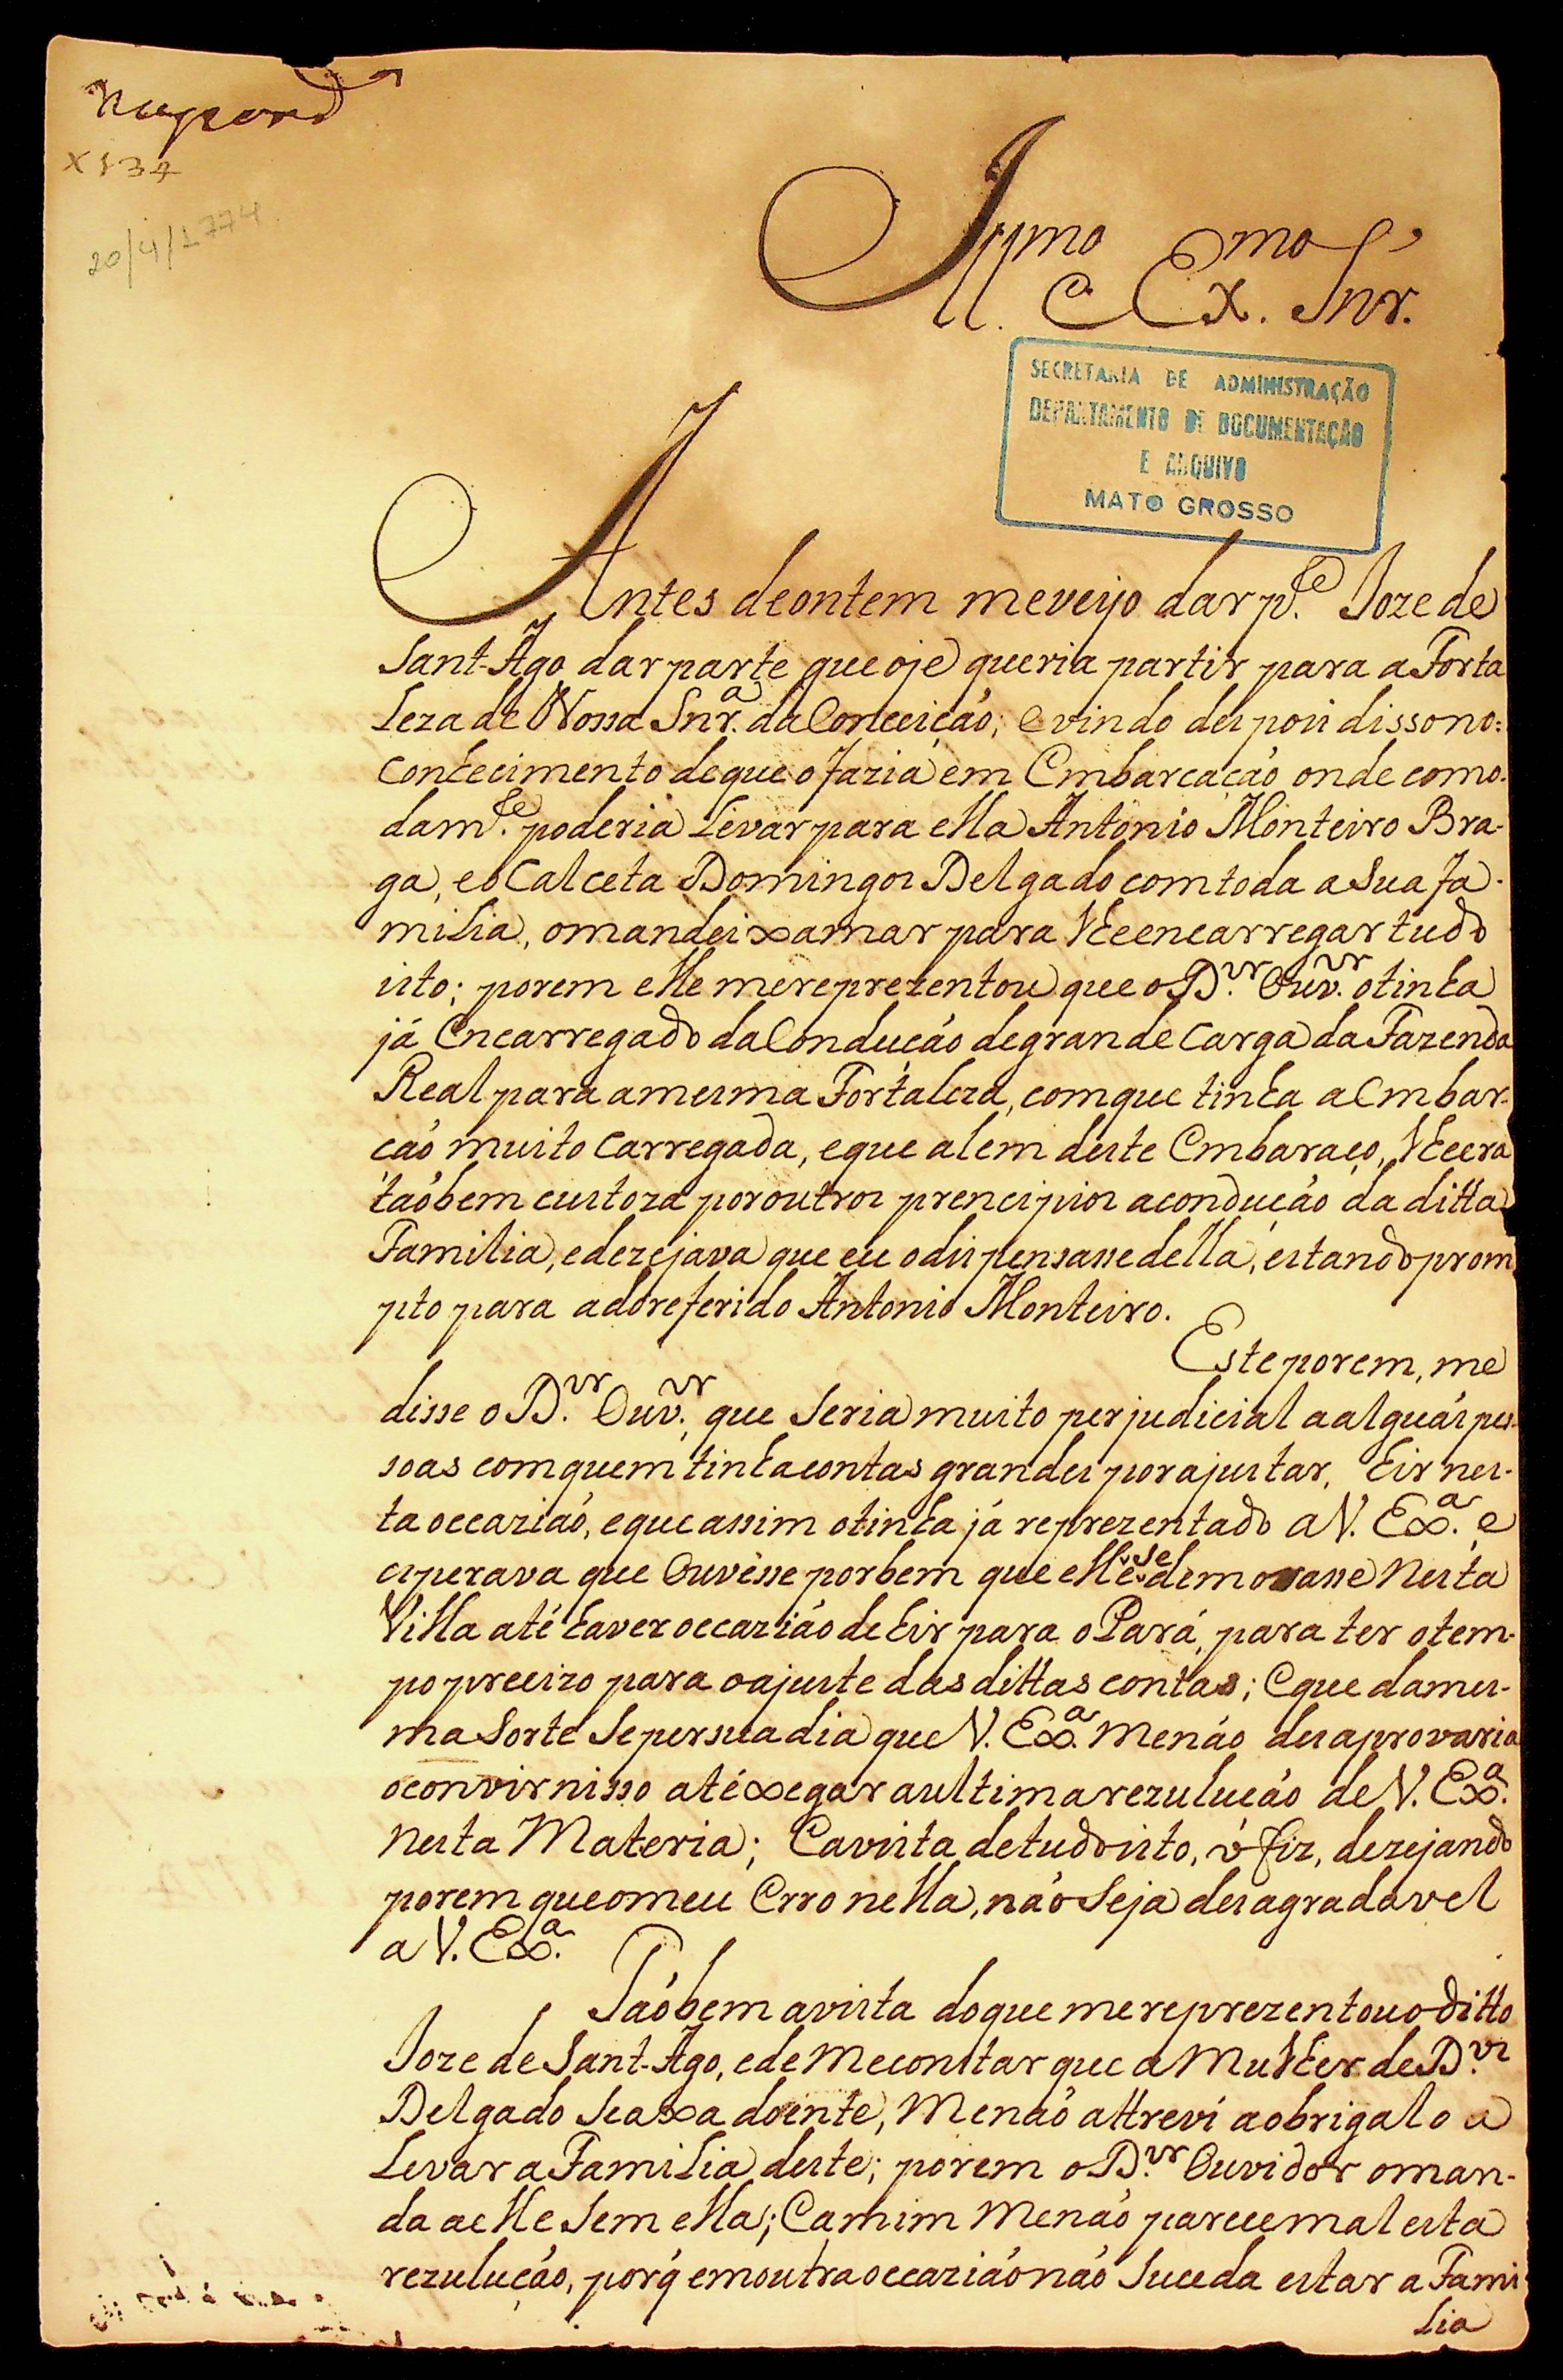 Respond.ª
X 137
20/4/1774
Illmo e Exmo Snr.
SECRETARIA DE ADMINISTRAÇÃO
DEPARTAMENTO DE DOCUMENTAÇÃO
E ARQUIVO
MATO GROSSO
Antes deontem meveyo dar p.te Joze de
Sant-Ago dar parte que oje queria partir para a Forta
leza de Nossa Snr.a da Conceição; e vindo despois disso no=
conhecimento deque o fazia em Embarcação onde como-
dam.te poderia levar para ella Antonio Monteiro Bra-
ga, e o Calceta Domingos Delgado com toda a sua fa-
milia, omandei xamar para lhe encarregar tudo
isto; porem elle mereprezentou que o D.or Ouv.or otinha
já Encarregado da Condução degrande carga da Fazenda
Real para amesma Fortaleza, comque tinha a Embar-
cão muito carregada, eque alem deste Embaraço, lhe era
taõbem custoza poroutros prencipios acondução da ditta
Familia, edezejava que eu odispensasse della, estando prom
pto para adoreferido Antonio Monteiro.
Este porem, me
disse o D.or Ouv.or, que seria muito perjudicial a alguás pes-
soas comquem tinha contas grandes por ajustar, hir nes-
ta occazião, eque assim otinha já reprezentado a V. Ex.a e
esperava que Ouvésse porbem que elle se demorasse Nesta
Villa até haver occazião de hir para o Pará, para ter otem-
po precizo para oajuste das dittas contas; Eque dames-
ma sorte se persuadia que V. Ex.a menáo desaprovaria
oconvir nisso até xegar a ultima rezulução de V. Ex.a
nesta Materia; E avista detudo isto, o fiz, dezejando
porem que o meu Erro nella, não seja desagradavel
a V. Ex.a
Taõbem avista do que mereprezentou o ditto
Joze de Sant-Ago, ede meconstar que a Mulher de D.os
Delgado seaxa doente, Menaõ attrevi aobrigalo a
Levar a Familia deste; porem o D.or Ouvidor oman-
da aelle sem ella; E amim Menaõ parece mal esta
rezulução, porq̃ emoutra occazião não suceda estar a Fami
lia